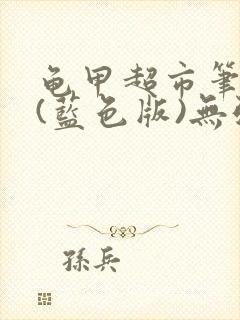 龟甲超市筆
(藍色版)無
孫兵